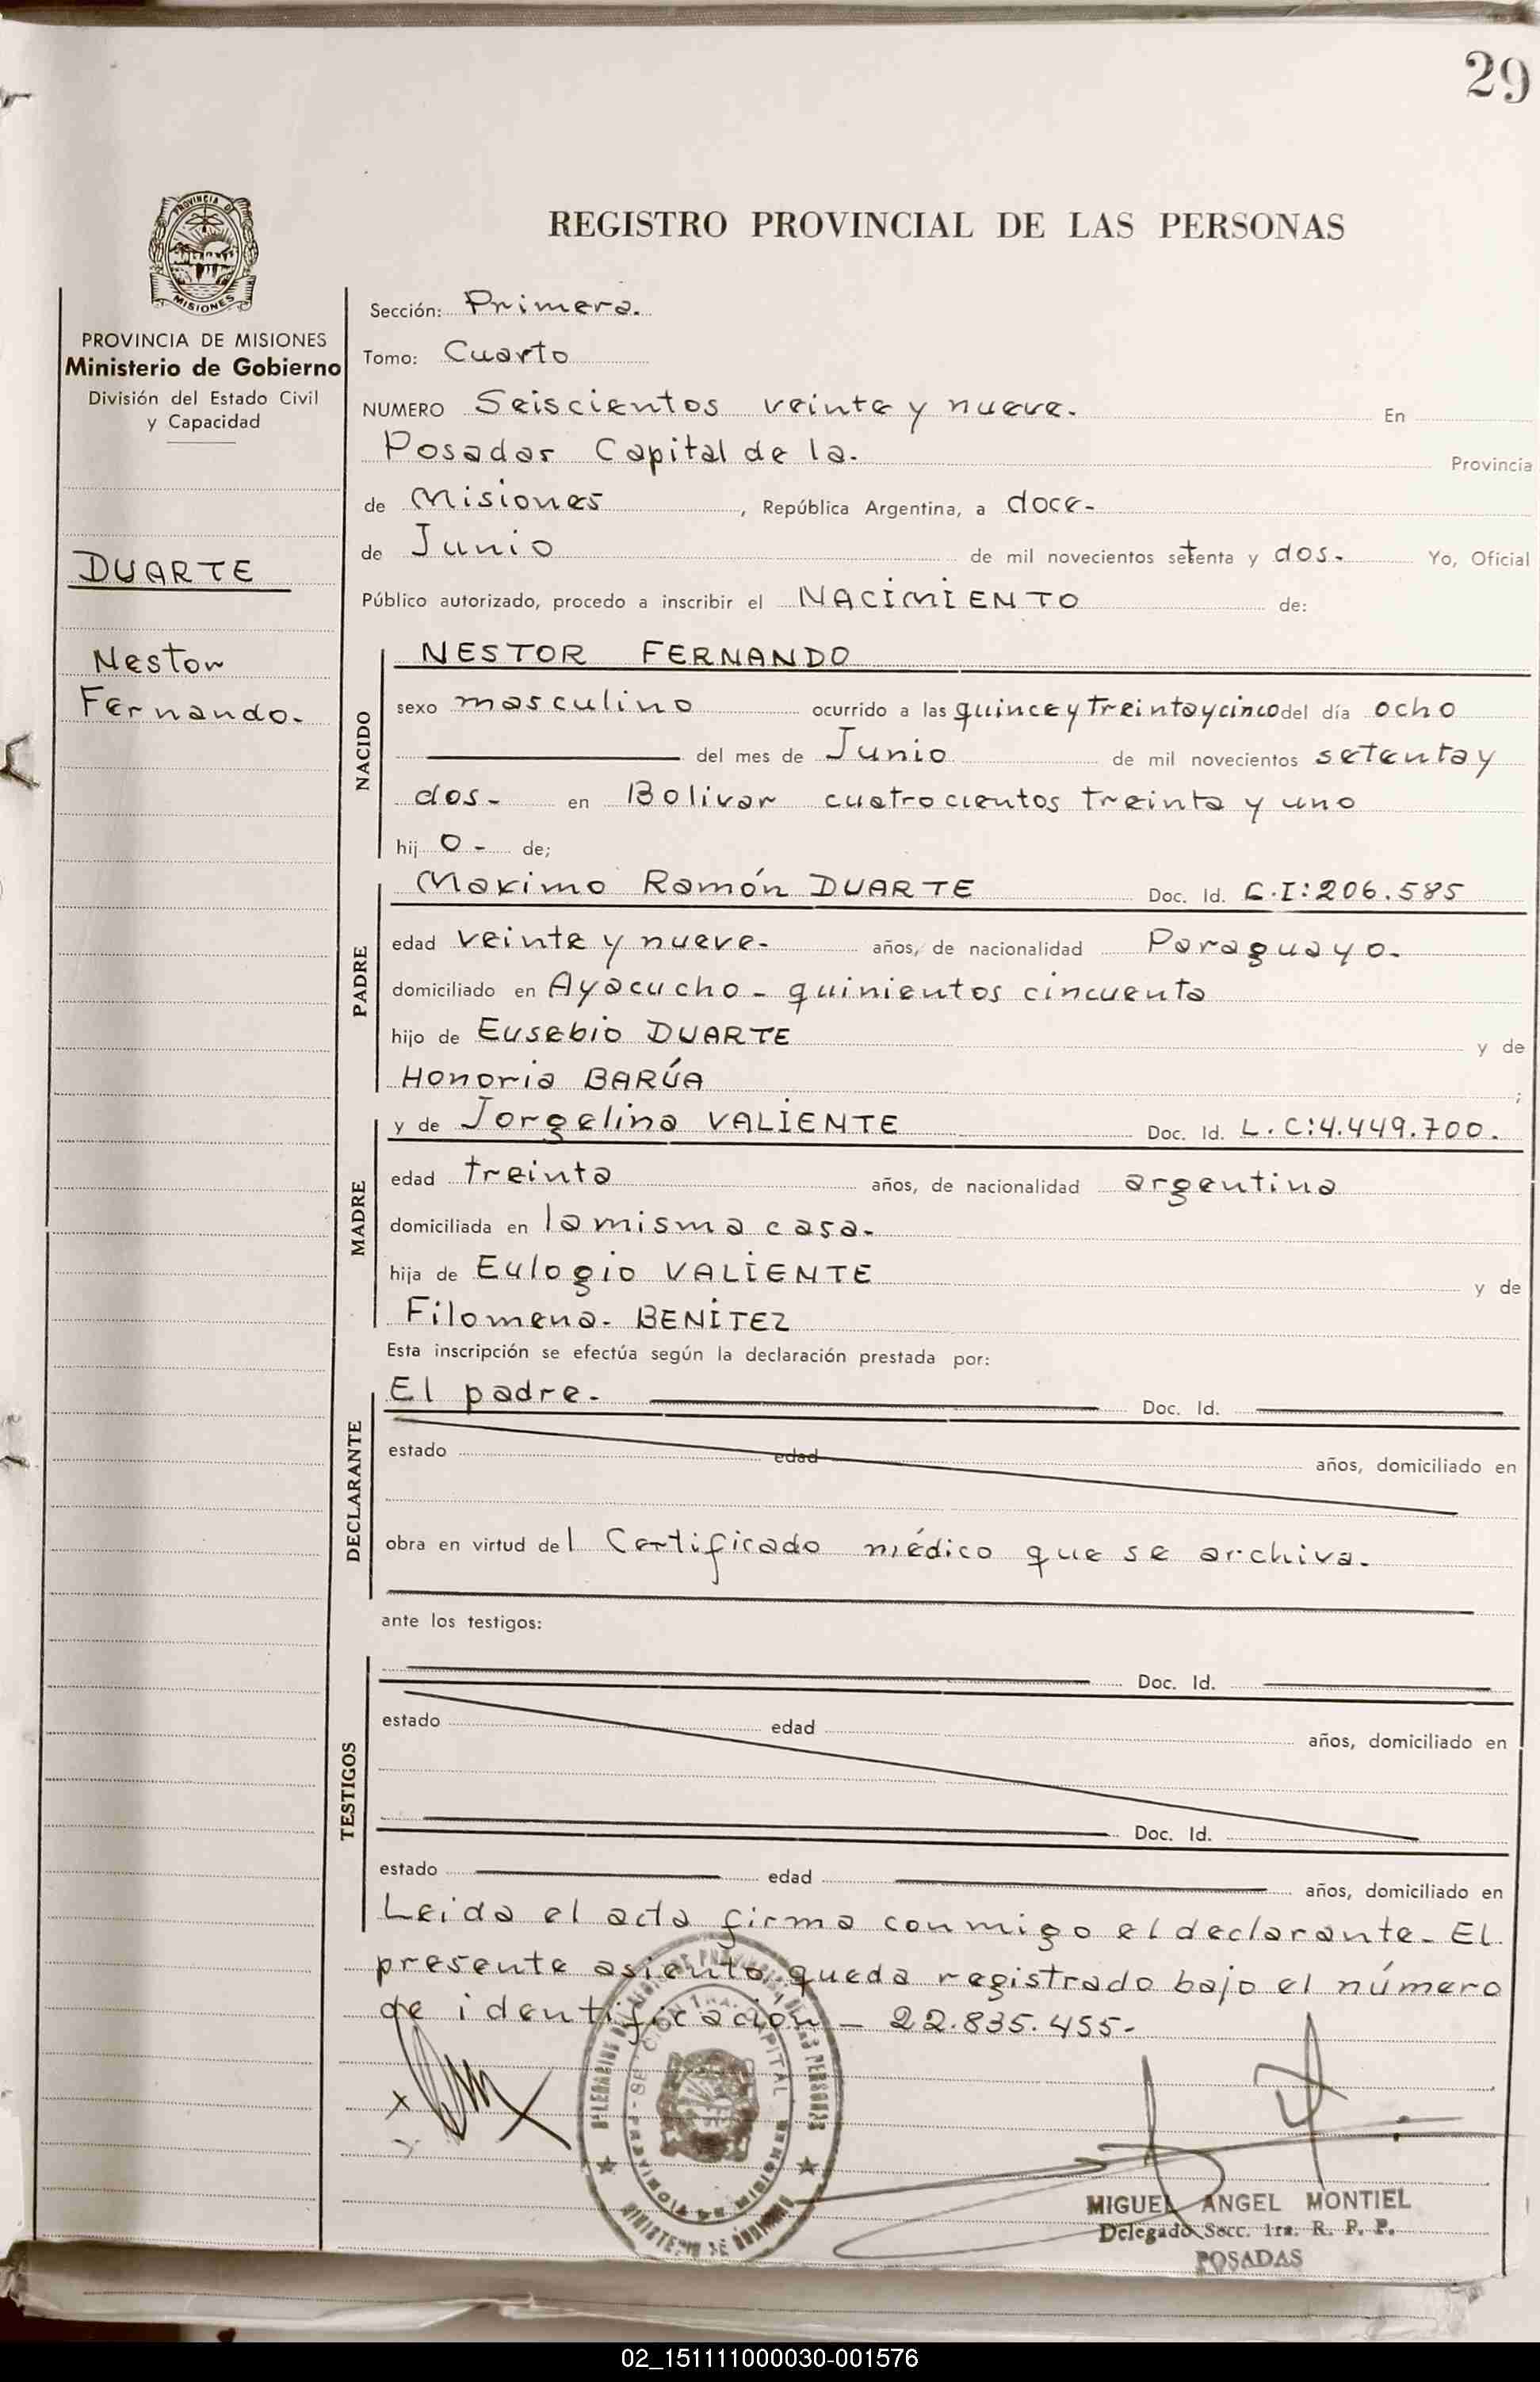 29
PROVINCIA DE
MISIONES
PROVINCIA DE MISIONES
Ministerio de Gobierno
División del Estado Civil
y Capacidad
DUARTE
Nestor
Fernando.
REGISTRO PROVINCIAL DE LAS PERSONAS
Sección: Primera.
Tomo: Cuarto
NUMERO Seiscientos veinte y nueve. En
Posadas Capital de la. Provincia
de Misiones, República Argentina, a doce-
de Junio de mil novecientos setenta y dos. Yo, Oficial
Público autorizado, procedo a inscribir el NACIMIENTO de:
NACIDO
NESTOR FERNANDO
sexo masculino ocurrido a las quince y treinta y cinco del día ocho
del mes de Junio de mil novecientos setenta y
dos- en Bolivar cuatrocientos treinta y uno
hij o- de;
PADRE
Maximo Ramón DUARTE Doc. Id. C.I:206.585
edad veinte y nueve- años, de nacionalidad Paraguayo-
domiciliado en Ayacucho - quinientos cincuenta
hijo de Eusebio DUARTE y de
Honoria BARÚA ;
MADRE
y de Jorgelina VALIENTE Doc. Id. L.C:4.449.700.
edad treinta años, de nacionalidad argentina
domiciliada en la misma casa-
hija de Eulogio VALIENTE y de
Filomena- BENITEZ
Esta inscripción se efectúa según la declaración prestada por:
DECLARANTE
El padre- Doc. Id.
estado edad años, domiciliado en
obra en virtud del Certificado médico que se archiva-
ante los testigos:
TESTIGOS
Doc. Id.
estado edad años, domiciliado en
Doc. Id.
estado edad años, domiciliado en
Leida el acta firma conmigo el declarante- El
presente asiento queda registrado bajo el número
de identificación - 22.835.455-
MIGUEL ANGEL MONTIEL
Delegado Secc. 1ra. R. P. P.
POSADAS
02_151111000030-001576